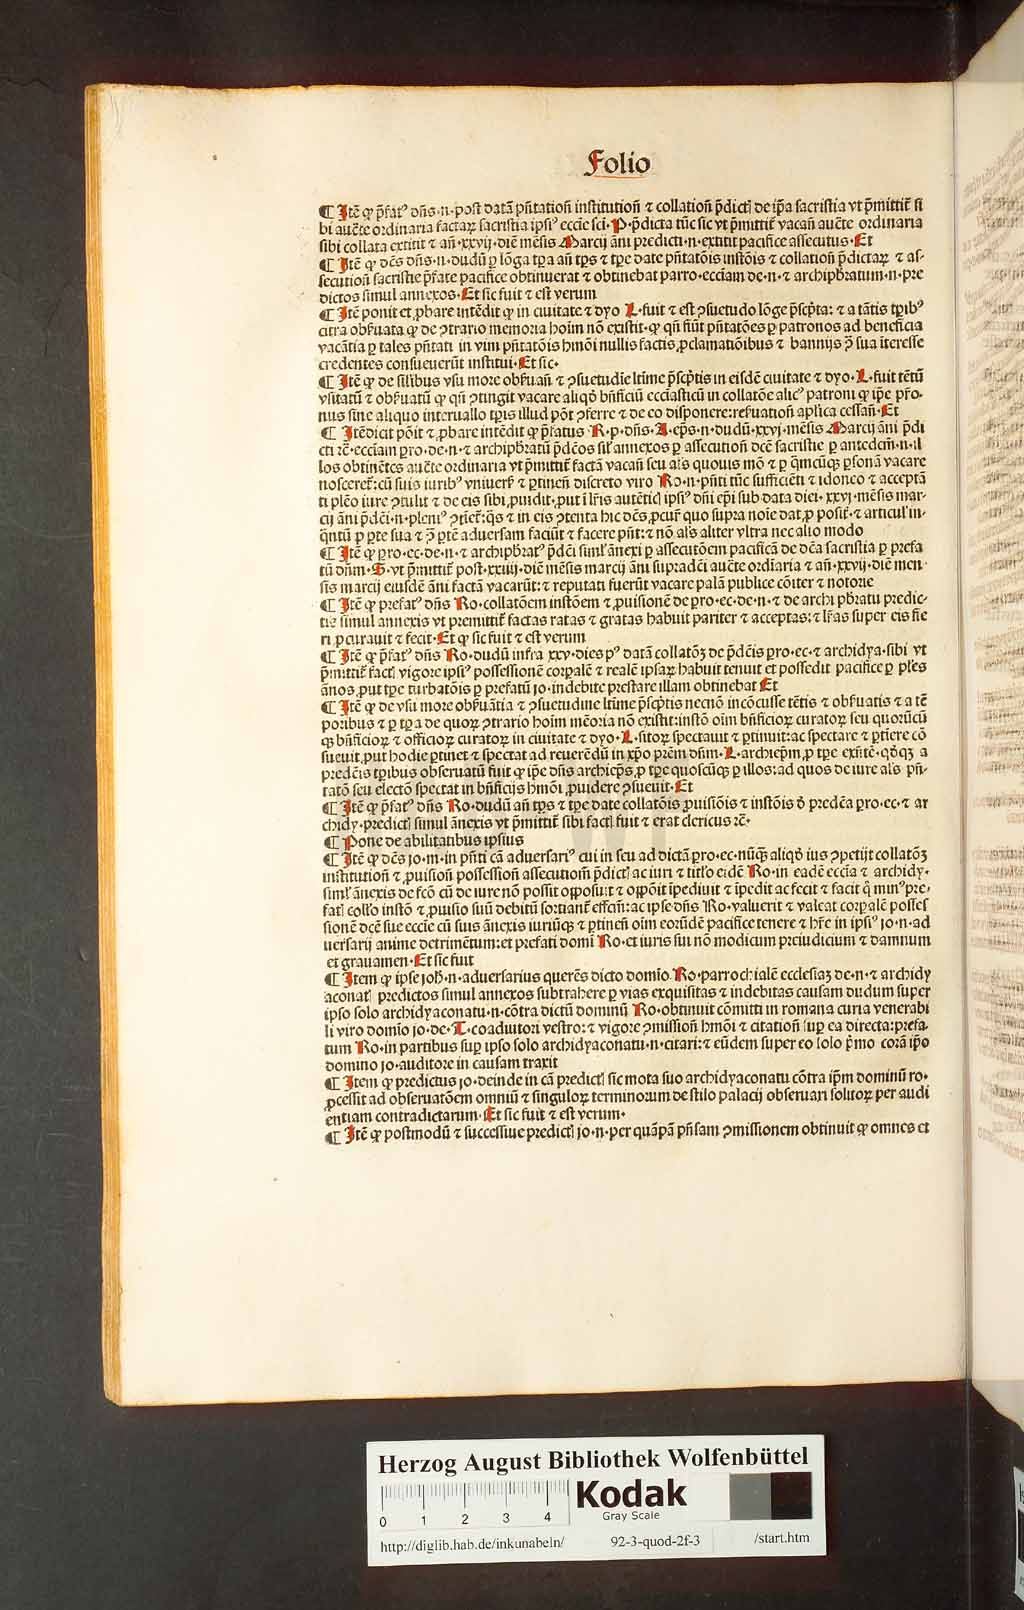 Folio
¶ Itē ꝙ p̄fatꝰ dn̄s·n·post datā pn̄tation̄ institution̄ ⁊ collation̄ p̄dictꝭ de ip̄a sacristia vt p̄mittit̄ si
bi auc̄te ordinaria factaꝝ sacristia ipsiꝰ eccl̄e sci·P·p̄dicta tūc sic vt p̄mittit̄ vacan̄ auc̄te ordinaria
sibi collata extitit ⁊ an̄·xxvij·diē mēsis Marcij āni predicti·n·extitit pacifice assecutus·Et
¶ Itē ꝙ dc̄s dn̄s·n·dudū ꝑ lōga tp̄a an̄ tp̄s ⁊ tp̄e date pn̄tatōis instōis ⁊ collation̄ p̄dictaꝝ ⁊ as-
secution̄ sacristie p̄fate pacifice obtinuerat ⁊ obtinebat parro·eccl̄iam de·n·⁊ archipb̄ratum·n·pre
dictos simul annexos·Et sic fuit ⁊ est verum
¶ Itē ponit et ꝓbare intēdit ꝙ in ciuitate ⁊ dyo L·fuit ⁊ est ꝯsuetudo lōge p̄scp̄ta: ⁊ a tātis tp̄ibꝰ
citra obẜuata ꝙ de ꝯtrario memoria hoīm nō existit·ꝙ qn̄ fiūt pn̄tatōes ꝑ patronos ad beneficia
vacātia ꝑ tales pn̄tati in vim pn̄tatōis hmōi nullis factis ꝓclamatiōibus ⁊ bannijs ꝓ sua iteresse
credentes consueuerūt institui·Et sic·
¶ Itē ꝙ de silibus vsu more obẜuan̄ ⁊ ꝯsuetudīe ltīme p̄scp̄tis in eisdē ciuitate ⁊ dyo·L·fuit tētū
vsitatū ⁊ obẜuatū ꝙ qn̄ ꝯtingit vacare aliqd̄ bn̄ficiū eccl̄iasticū in collatōe alicꝰ patroni ꝙ ip̄e pr̄o-
nus sine aliquo interuallo tp̄is illud pōt ꝯferre ⁊ de eo disponere:reẜuation̄ apl̄ica cessan̄·Et
¶ Itē dicit pōit ⁊ ꝓbare intēdit ꝙ p̄fatus R·p·dn̄s·A·ep̄s·n·dudū·xxvi·mēsis Marcij āni p̄di
cti rē·eccl̄iam pro·de·n·⁊ archipb̄ratū p̄dc̄os sil̄ annexos ꝑ assecution̄ dc̄e sacristie ꝑ antedcm̄·n·il
los obtinētes auc̄te ordinaria vt p̄mittit̄ factā vacan̄ seu al̄s quouis mō ⁊ ꝑ q̄mcūꝙ ꝑsonā vacare
nosceret̄:cū suis iuribꝰ vniuers̄ ⁊ ꝑtinen̄ discreto viro Ro·n·pn̄ti tūc sufficiēti ⁊ idoneo ⁊ acceptā
ti plēo iure ꝯtulit ⁊ de eis sibi ꝓuidit·put ī lr̄is autēticꝭ ipsiꝰ dn̄i ep̄i sub data diei·xxvj·mēsis mar-
cij āni p̄dc̄i·n·pleniꝰ ꝯtinet̄:q̄s ⁊ in eis ꝯtenta hic dc̄s ꝓcur̄ quo supra noīe dat ꝓ posit̄·⁊ articul̄ in-
q̄ntū ꝑ ꝑte sua ⁊ ꝯ̄ ꝑtē aduersam faciūt ⁊ facere pn̄t:⁊ nō al̄s aliter vltra nec alio modo
¶ Itē ꝙ pro·ec·de·n·⁊ archipb̄ratꝰ p̄dc̄i siml̄ ānexi ꝑ assecutōem pacificā de dc̄a sacristia ꝑ prefa
tū dn̄m·S·vt p̄mittit̄ post·xxiiij·diē mēsis marcij āni sup̄radc̄i auc̄te ordīaria ⁊ an̄·xxvij·diē men-
sis marcij eiusdē āni factā vacarūt:⁊ reputati fuerūt vacare palā publice cōiter ⁊ notorie
¶ Itē ꝙ prefatꝰ dn̄s Ro·collatōem instōem ⁊ ꝓuisionē de pro·ec·de·n·⁊ de archi pb̄ratu predic-
tis simul annexis vt premittit̄ factas ratas ⁊ gratas habuit pariter ⁊ acceptas:⁊ lr̄as super eis fie
ri ꝓcurauit ⁊ fecit·Et ꝙ sic fuit ⁊ est verum
¶ Itē ꝙ p̄fatꝰ dn̄s Ro·dudū infra xxv·dies pꝰ datā collatōꝫ de p̄dc̄is pro·ec·⁊ archidya·sibi vt
p̄mittit̄ factꝭ vigore ipsiꝰ possessionē corꝑalē ⁊ realē ipsaꝝ habuit tenuit et possedit pacifice ꝑ pl̄es
ānos ꝓut tp̄e turbatōis ꝑ prefatū jo·indebite prestare illam obtinebat Et
¶ Itē ꝙ de vsu more obẜuātia ⁊ ꝯsuetudine ltīme p̄scp̄tis necnō incōcusse tētis ⁊ obẜuatis ⁊ a tē
poribus ⁊ ꝑ tp̄a de quoꝝ ꝯtrario hoīm mēoria nō existit:instō oīm bn̄ficioꝝ curatoꝝ seu quorūcū
ꝙ bn̄ficioꝝ ⁊ officioꝝ curatoꝝ in ciuitate ⁊ dyo·L·sitoꝝ spectauit ⁊ ꝑtinuit:ac spectare ⁊ ꝑtiere cō
sueuit ꝓut hodie ꝑtinet ⁊ spectat ad reuerēdū in xp̄o pr̄em dn̄m·L·archiep̄m ꝓ tp̄e exn̄tē·qd̄qꝫ a
predc̄is tp̄ibus obseruatū fuit ꝙ ip̄e dn̄s archiep̄s ꝓ tp̄e quoscūqꝫ ꝑ illos:ad quos de iure al̄s pn̄-
tatō seu electō spectat in bn̄ficijs hmōi ꝓuidere ꝯsueuit·Et
¶ Itē ꝙ p̄fatꝰ dn̄s Ro·dudū an̄ tp̄s ⁊ tp̄e date collatōis ꝓuisiōis ⁊ instōis d̄ predc̄a pro·ec·⁊ ar
chidy·predictꝭ simul ānexis vt p̄mittit̄ sibi factꝭ fuit ⁊ erat clericus rē·
¶ Pone de abilitatibus ipsius
¶ Itē ꝙ dc̄s jo·m·in pn̄ti cā aduersariꝰ cui in seu ad dictā pro·ec·nūqꝫ aliqd̄ ius ꝯpetijt collatōꝫ
institution̄ ⁊ ꝓuision̄ possession̄ assecutiom̄ p̄dictꝭ ac iuri ⁊ titlo eidē Ro·in eadē eccl̄ia ⁊ archidy·
siml̄ ānexis de fcō cū de iure nō possit opposuit ⁊ oppōit īpediuit ⁊ īpedit ac fecit ⁊ facit q̄ minꝰ pre-
fatꝭ collō instō ⁊ ꝓuisio suū debitū sortiant̄ effcm̄:ac ipse dn̄s Ro·valuerit ⁊ valeat corꝑalē posses
sionē dc̄e sue eccl̄e cū suis ānexis iuriūqꝫ ⁊ ꝑtinen̄ oīm eorūdē pacifice tenere ⁊ hr̄e in ipsiꝰ jo·n·ad
uersarij anime detrimētum:et prefati domī Ro·et iuris sui nō modicum preiudicium ⁊ damnum
et grauamen·Et sic fuit
¶ Item ꝙ ipse joh̄·n·aduersarius querēs dicto domīo Ro·parrochialē ecclesiaꝫ de·n·⁊ archidy
aconatꝭ predictos simul annexos subtrahere ꝑ vias exquisitas ⁊ indebitas causam dudum super
ipso solo archidyaconatu·n·cōtra dictū dominū Ro·obtinuit cōmitti in romana curia venerabi
li viro domīo jo·de·T·coadiutori vestro:⁊ vigore ꝯmission̄ hmōi ⁊ citation̄ sup̄ ea directa:prefa-
tum Ro·in partibus sup̄ ipso solo archidyaconatu·n·citari:⁊ eūdem super eo solo p̄mo corā ip̄o
domino jo·auditore in causam traxit
¶ Item ꝙ predictus jo·deinde in cā predictꝭ sic mota suo archidyaconatu cōtra ip̄m dominū ro·
ꝓcessit ad obseruatōem omniū ⁊ singuloꝝ terminorum de stilo palacij obseruari solitoꝝ per audi
entiam contradictarum·Et sic fuit ⁊ est verum·
¶ Itē ꝙ postmodū ⁊ successiue predictꝭ jo·n·per quāpā pn̄sam ꝯmissionem obtinuit ꝙ omnes et
Herzog August Bibliothek Wolfenbüttel
0 1 2 3 4
Kodak
Gray Scale
http://diglib.hab.de/inkunabeln/ 92-3-quod-2f-3 /start.htm